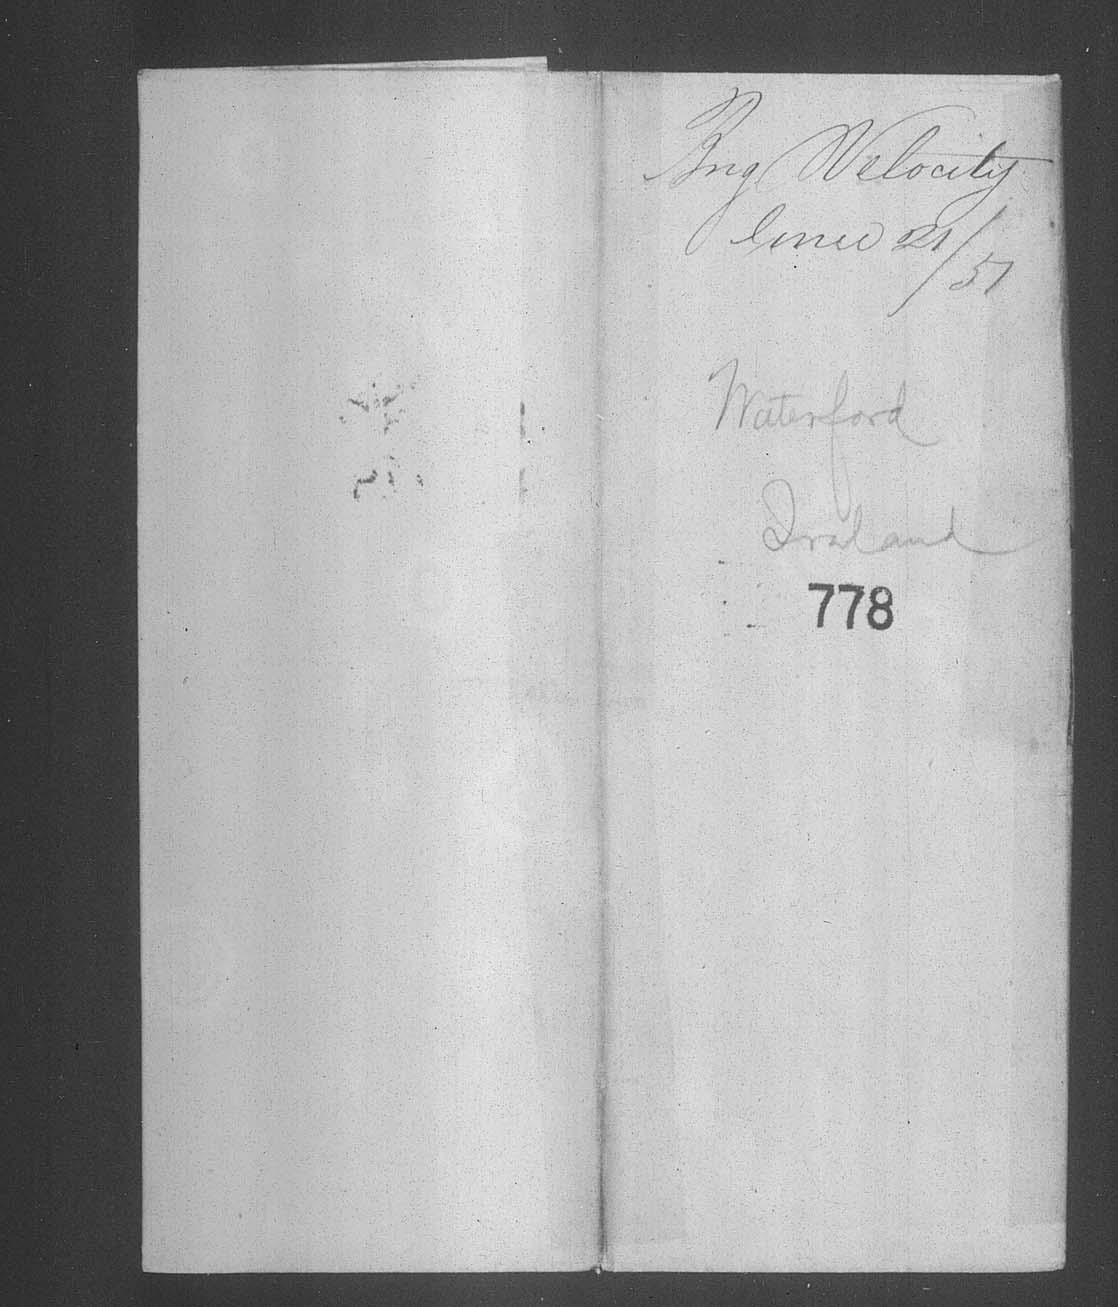 Brig Velocity
June 21/51
Waterford
Ireland
778